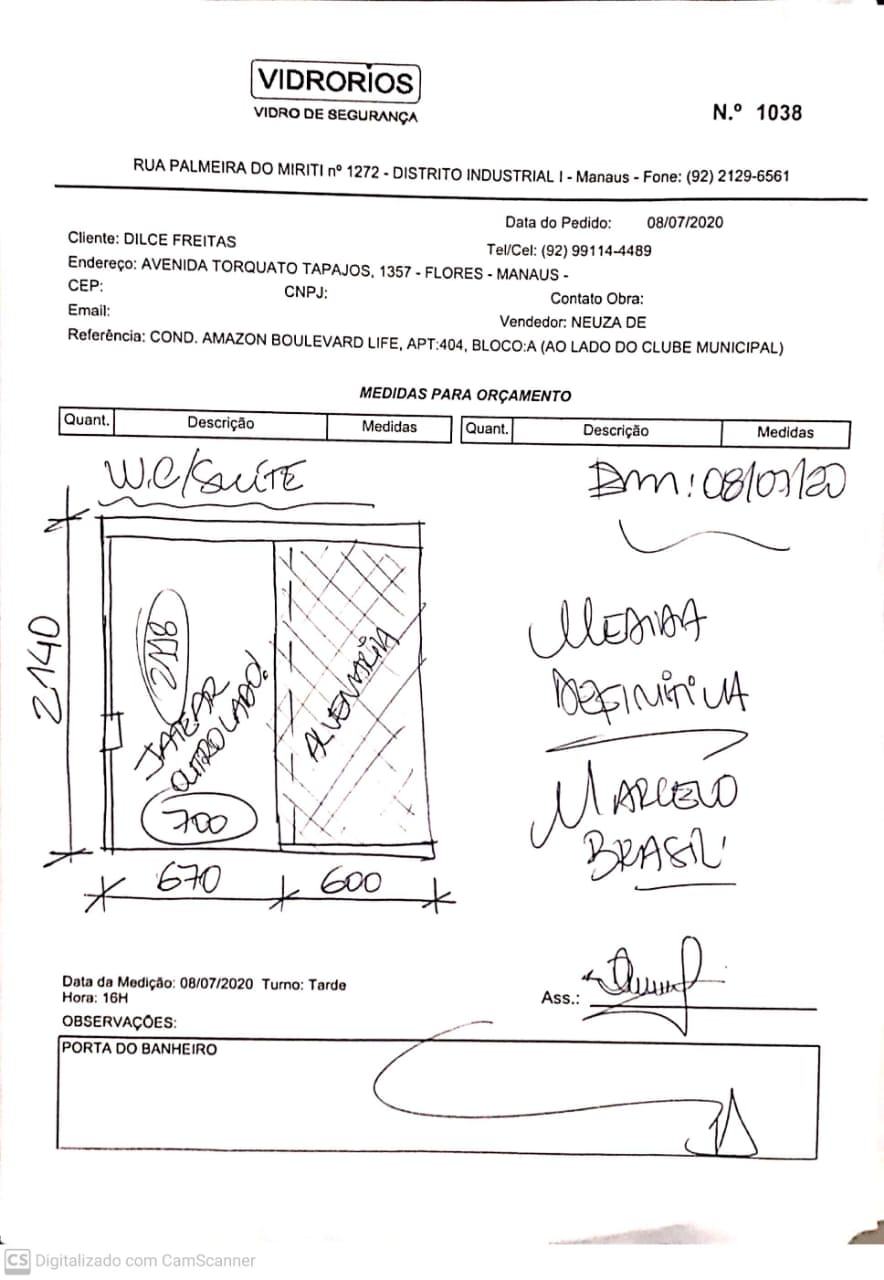 VIDRORIOS
VIDRO DE SEGURANÇA
N.º 1038
RUA PALMEIRA DO MIRITI nº 1272 - DISTRITO INDUSTRIAL I - Manaus - Fone: (92) 2129-6561
Data do Pedido: 08/07/2020
Cliente: DILCE FREITAS
Tel/Cel: (92) 99114-4489
Endereço: AVENIDA TORQUATO TAPAJOS, 1357 - FLORES - MANAUS -
CEP: CNPJ: Contato Obra:
Email:
Vendedor: NEUZA DE
Referência: COND. AMAZON BOULEVARD LIFE, APT:404, BLOCO:A (AO LADO DO CLUBE MUNICIPAL)
MEDIDAS PARA ORÇAMENTO
Quant. Descrição Medidas Quant. Descrição Medidas
W.C/SUÍTE
DM: 08/07/20
2140
2118
JATEAR
OUTRO LADO!
ALVENARIA
700
670 600
MEDIDA
DEFINITIVA
MARCELO
BRASIL
Data da Medição: 08/07/2020 Turno: Tarde
Hora: 16H
Ass.:
OBSERVAÇÕES:
PORTA DO BANHEIRO
CS Digitalizado com CamScanner